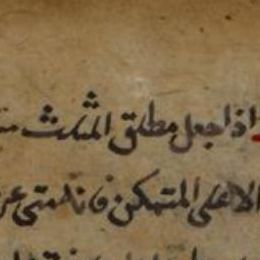 اذا جعل مطلق المثلث
الاعلى المتمكن فانه متى عر